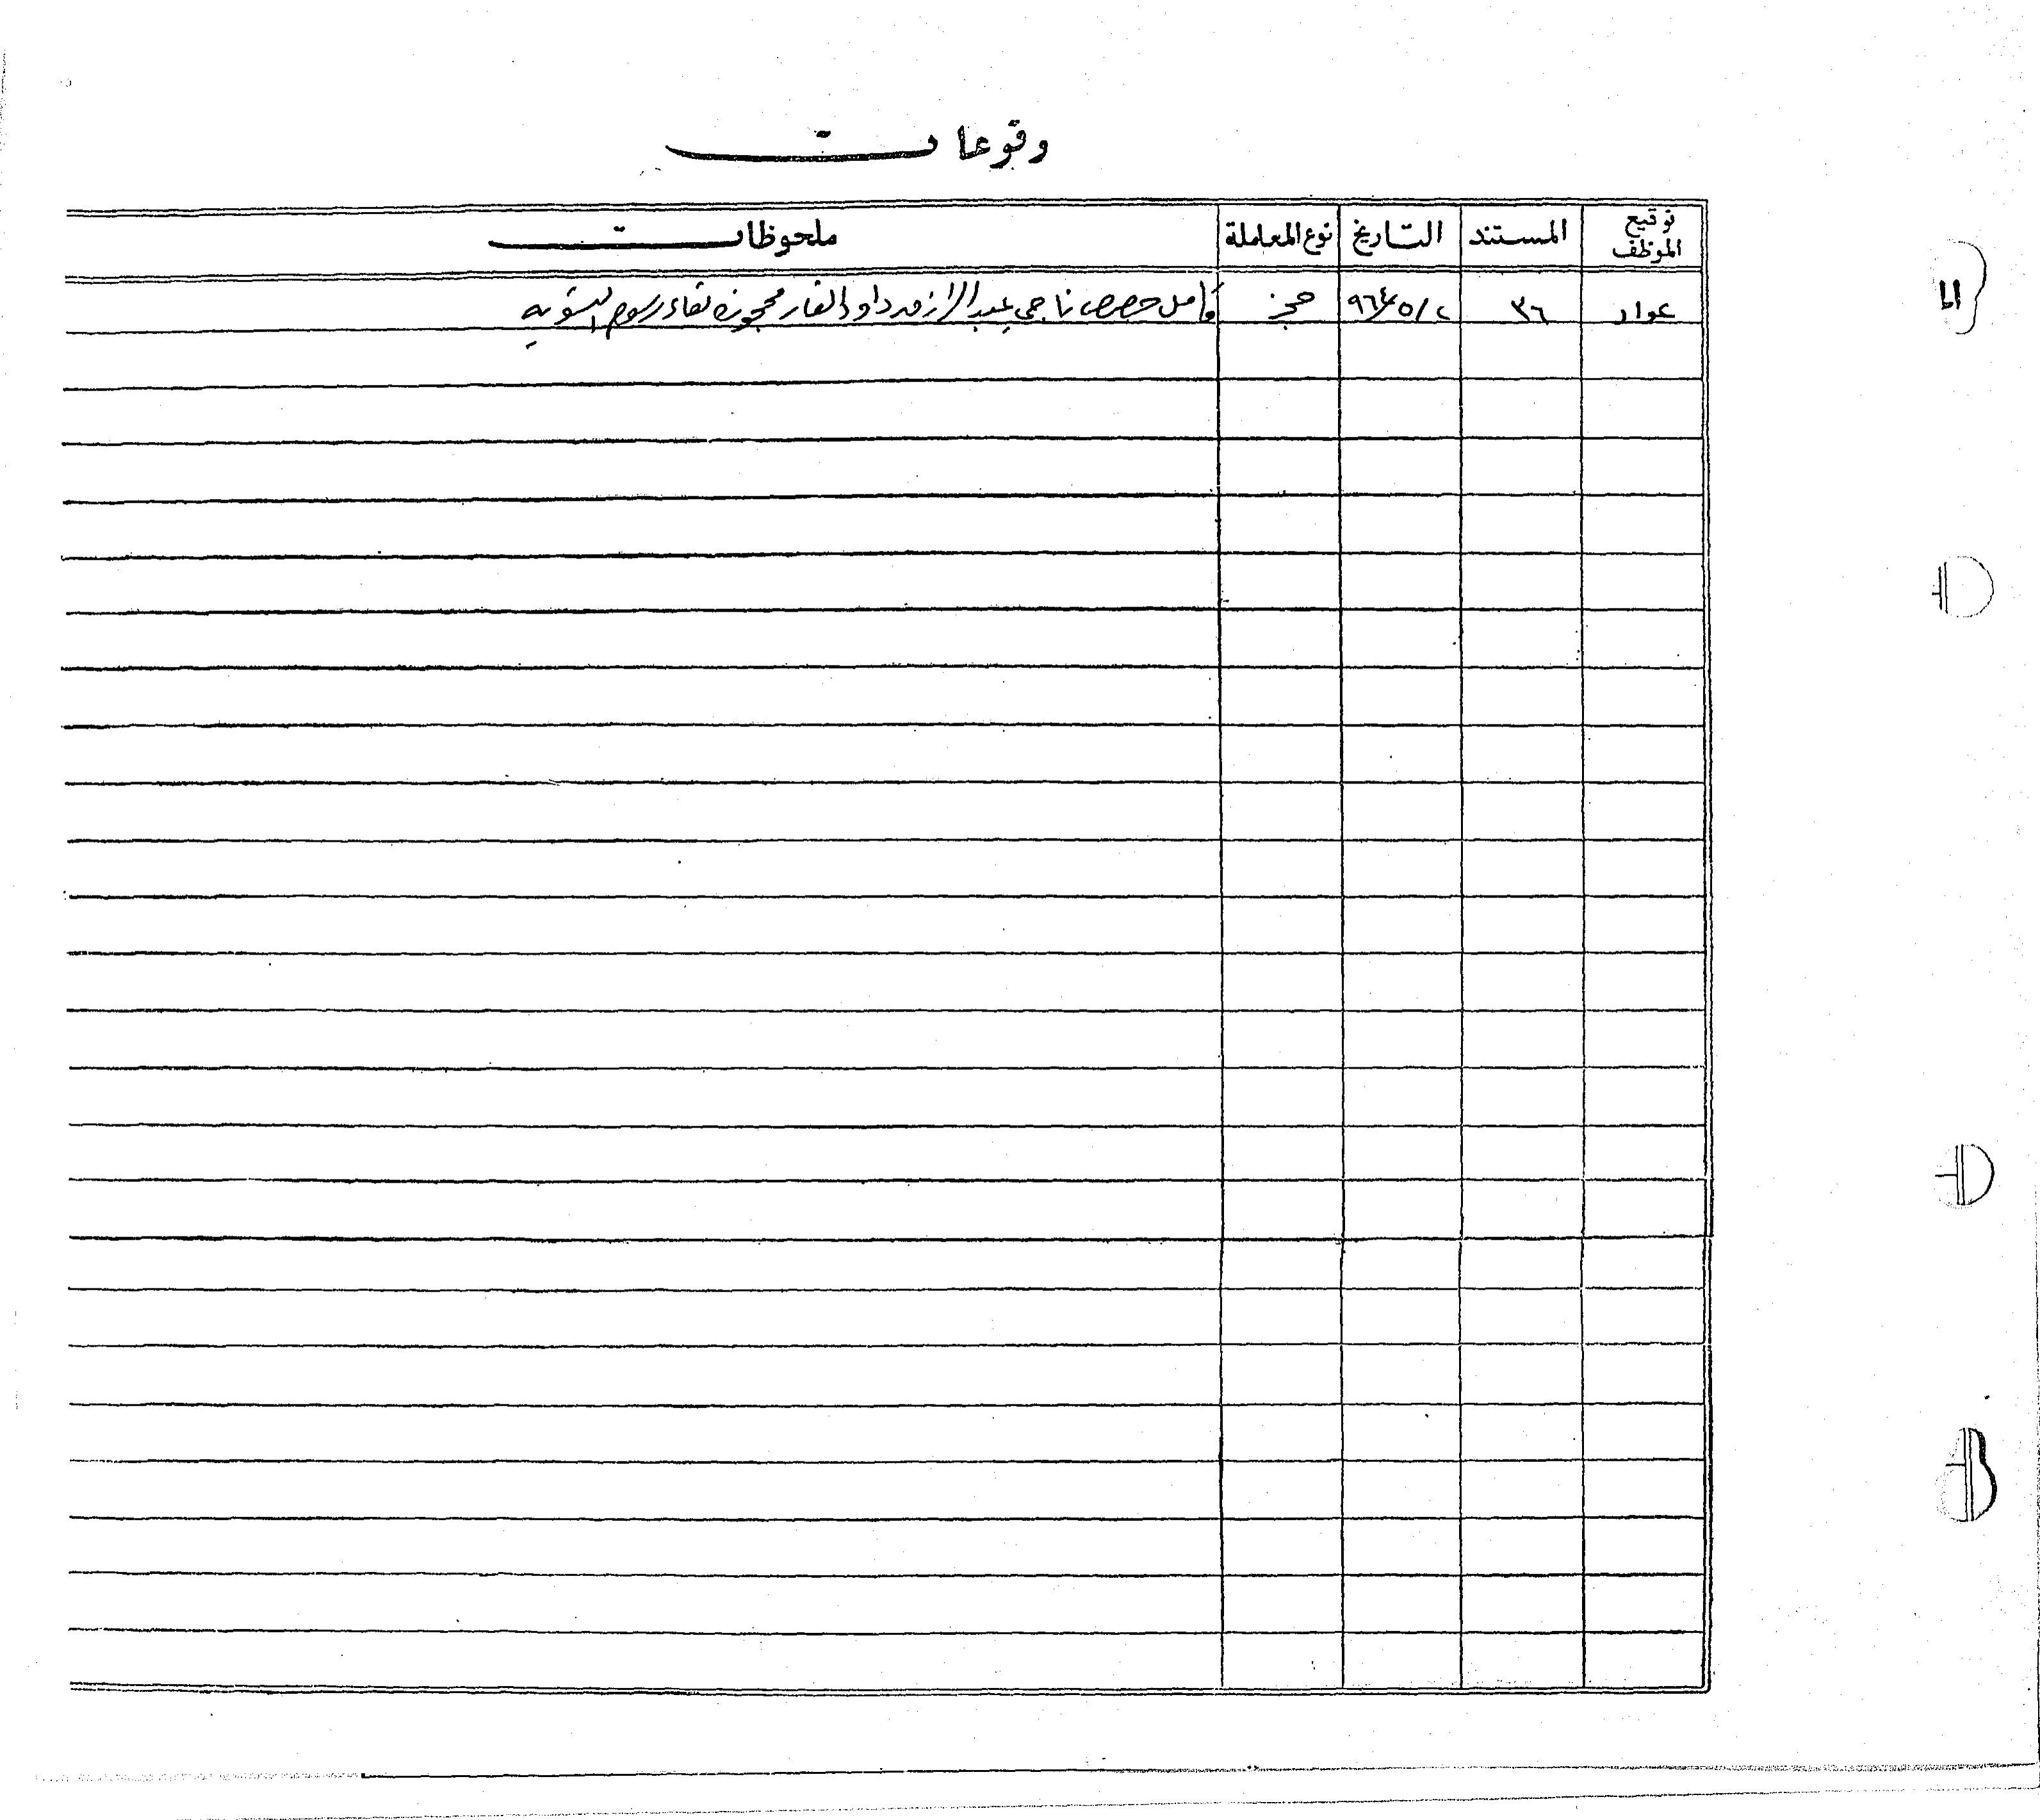 وقوعات
توقيع الموظف المستند التاريخ نوع المعاملة ملحوظات
عواد ٣٦ ٩٦٤/٥/٢ حجز كامل حصص ناجي عبد الرازق داود الفار محجوزه لقاء رسوم التسويه